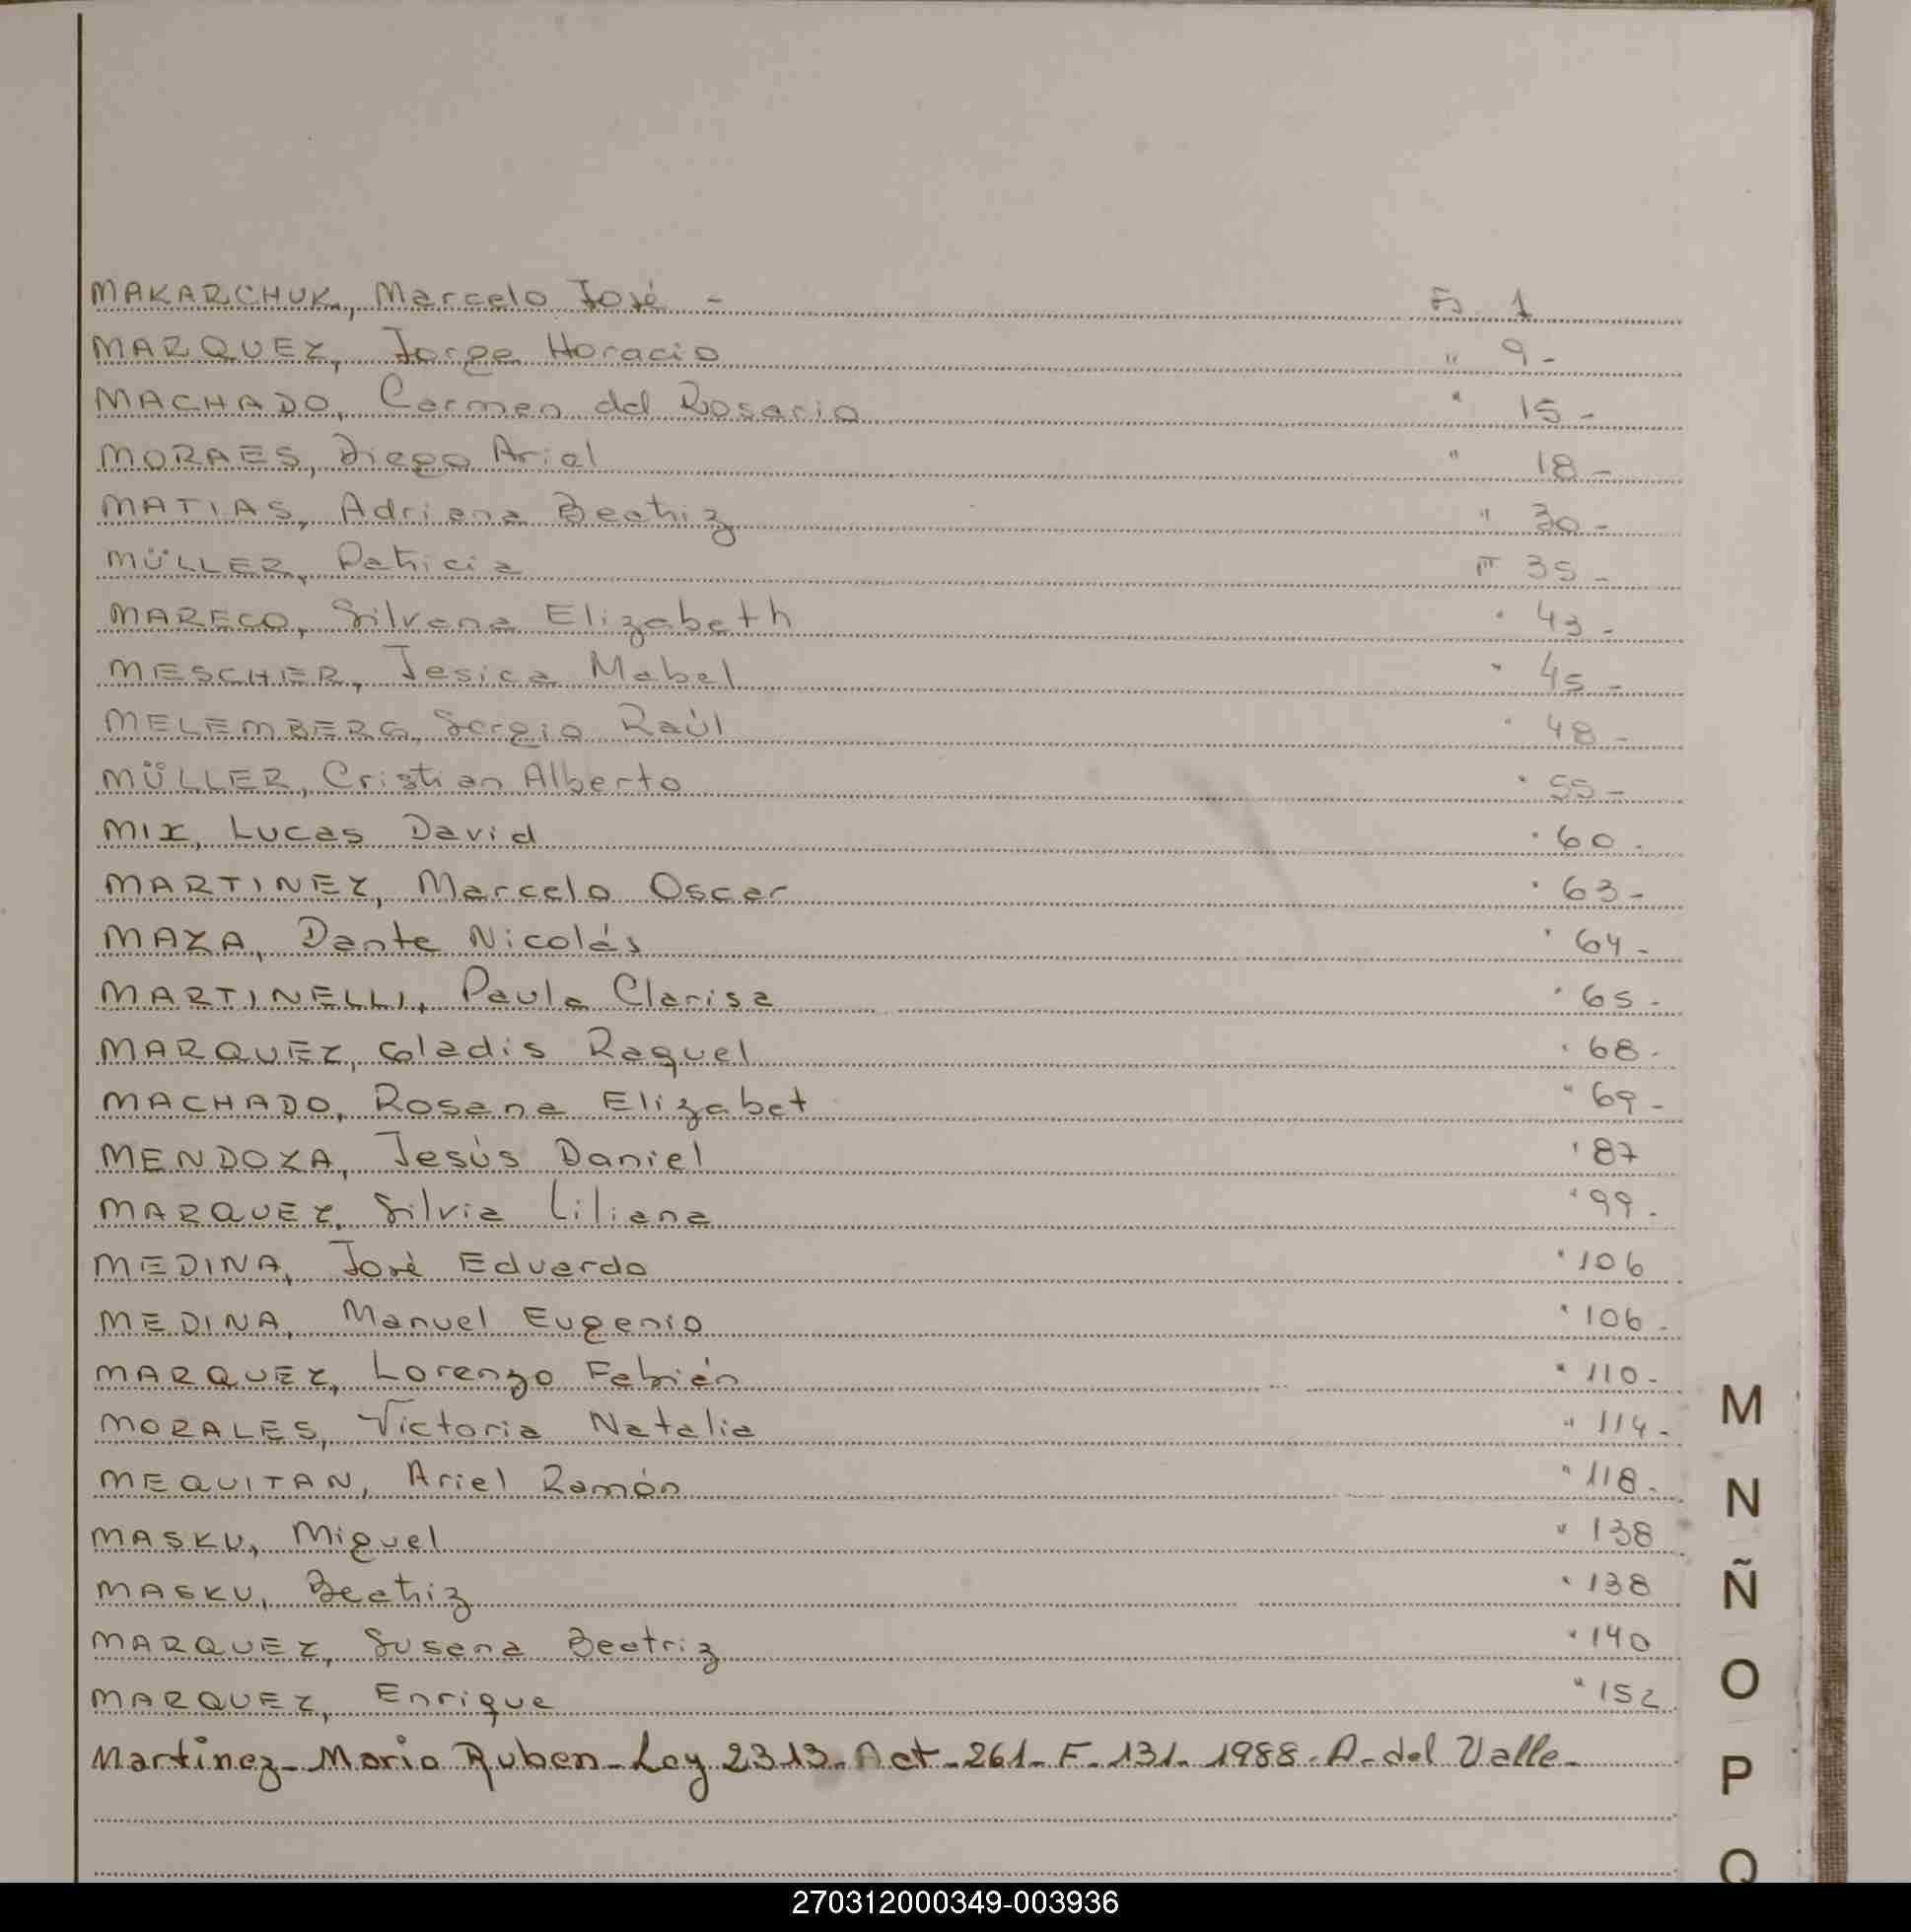 MAKARCHUK, Marcelo José - Fs. 1
MARQUEZ, Jorge Horacio " 9-
MACHADO, Carmen del Rosario " 15-
MORAES, Diego Ariel " 18-
MATIAS, Adriana Beatriz " 30-
MÜLLER, Patricia " 35-
MARECO, Silvana Elizabeth " 43-
MESCHER, Jesica Mabel " 45-
MELEMBERG, Sergio Raúl " 48-
MÜLLER, Cristian Alberto " 55-
MIX, Lucas David " 60-
MARTINEZ, Marcelo Oscar " 63-
MAZA, Dante Nicolás " 64-
MARTINELLI, Paula Clarisa " 65-
MARQUEZ, Gladis Raquel " 68-
MACHADO, Rosana Elizabet " 69-
MENDOZA, Jesús Daniel " 87
MARQUEZ, Silvia Liliana " 99-
MEDINA, José Eduardo " 106
MEDINA, Manuel Eugenio " 106-
MARQUEZ, Lorenzo Fabián " 110-
MORALES, Victoria Natalia " 114-
MEQUITAN, Ariel Ramón " 118-
MASKU, Miguel " 138
MASKU, Beatriz " 138
MARQUEZ, Susana Beatriz " 140
MARQUEZ, Enrique " 152
Martinez- Mario Ruben- Ley 2313- Act- 261- F- 131- 1988- A- del Valle-
M
N
Ñ
O
P
Q
270312000349-003936